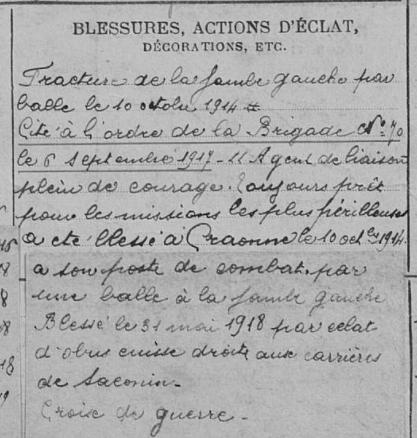 BLESSURES, ACTIONS D'ÉCLAT,
DÉCORATIONS, ETC.
Fracture de la jambe gauche par
balle le 10 octobre 1914 #
Cité à l'ordre de la Brigade N° 70
le 6 septembre 1917 - "Agent de liaison
plein de courage. Toujours prêt
pour les missions les plus périlleuses
a été blessé à Craonne le 10 oct bre 1914
a son poste de combat. par
une balle à la jambe gauche
Blessé le 31 mai 1918 par eclat
d'obus cuisse droite aux carrières
de Saconin -
Croix de guerre -